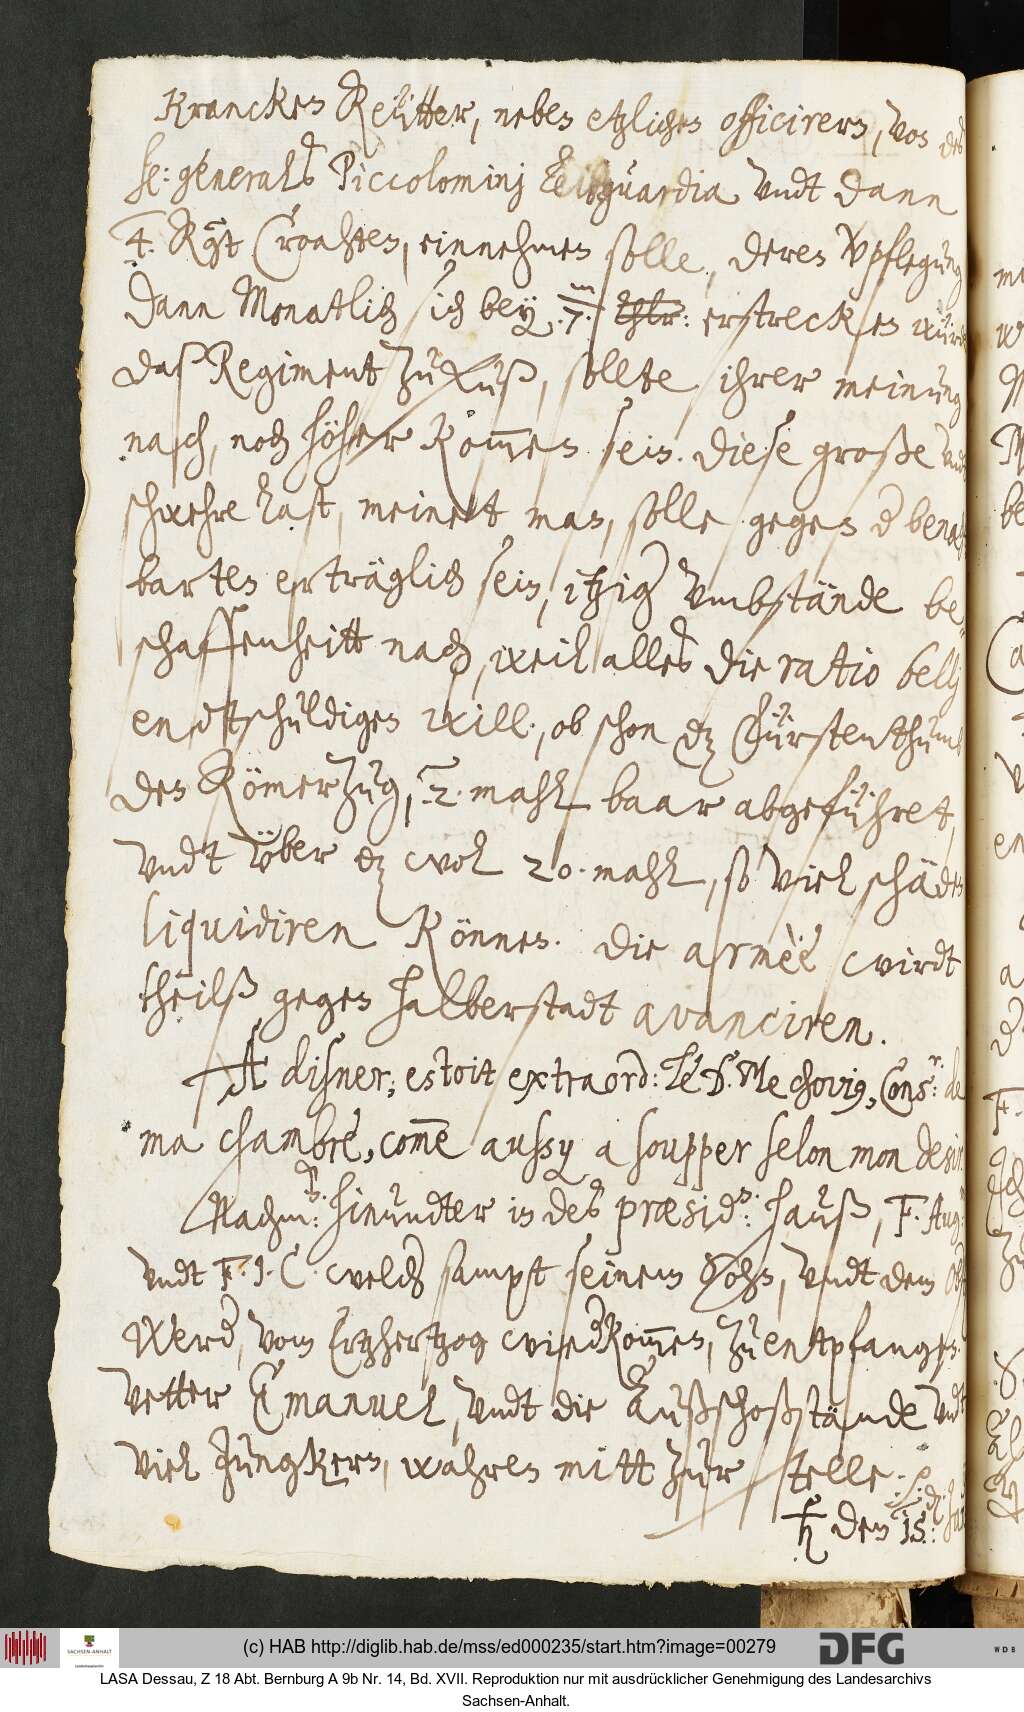 Krancken Reütter, neben etzlichen officirern, von des
he: generals Piccolominj Leibguardia undt dann
4. Rgt Croahten, einnehmen solle, deren Vpflegung
dann Monatlich sich bey .7. m thlr: erstrecken würde
daß Regiment zu Fuß, sollte ihrer meinung
nach, noch höher kommen sein. Diese große undt
schwehre last, meinet man, solle gegen d benach
barten erträglich sein, itzig umbstände be-
schaffenheitt nach, weil alles die ratio bellj
entschuldigen will., ob schon dz Fürstenthumb
den Römerzug, 2. mahl baar abgeführet,
undt über dz wol 20. mahl, so viel schäden
liquidiren können. Die armèè wirdt
theilß gegen Halberstadt avanciren.
A disner, estoit extraord: Le D. Mechovig, Cons.r: de
ma chambre, comme aussy a soupper selon mon desir.
Nachm: hinundter in des præsid.n: hauß, F. Aug:
undt F. J. C. welch sampt seinem Sohn, undt dem Obr
Werd, vom Ertzhertzog wied kommen, zu entpfangen.
Vetter Emanuel, undt die Außschoßstände undt
viel Jungkern, wahren mitt zur stelle.
♄ den 15.:
(c) HAB http://diglib.hab.de/mss/ed000235/start.htm?image=00279
DFG
WDB
SACHSEN-ANHALT
LASA Dessau, Z 18 Abt. Bernburg A 9b Nr. 14, Bd. XVII. Reproduktion nur mit ausdrücklicher Genehmigung des Landesarchivs
Sachsen-Anhalt.